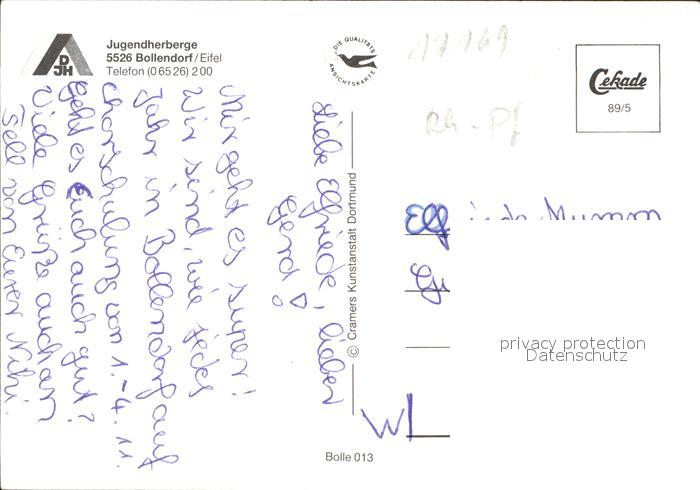 Jugendherberge
5526 Bollendorf/Eifel
Telefon (0 65 26) 2 00
DJH
DIE QUALITÄTS
ANSICHTSKARTE
17169
Rh-Pf
Cekade
89/5
Liebe Elfriede, lieber
Gerd!
Mir geht es super!
Wir sind, wie jedes
Jahr in Bollendorf auf
Chorschulung von 1.-4.11.
Geht es Euch auch gut?
Viele Grüße auch an
Sell von Eurer Niki.
© Cramers Kunstanstalt Dortmund
privacy protection
Datenschutz
Bolle 013